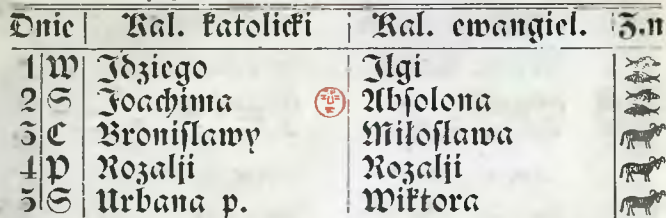 Dnie Kal. katolicki Kal. ewangiel. Z.n
1 W Idziego Ilgi
2 S Joachima Absolona
3 C Bronisławy Miłosława
4 P Rozalji Rozalji
5 S Urbana p. Wiktora